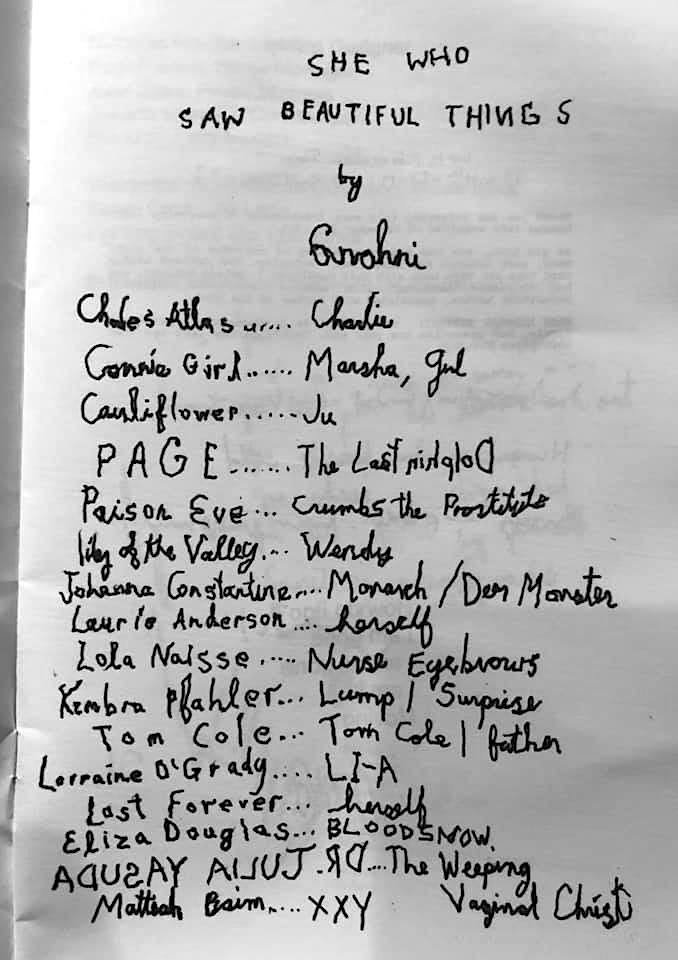 SHE WHO
SAW BEAUTIFUL THINGS
by
Charles Atlas...... Charlie
Connie Girl...... Marsha, Gul
Cauliflower...... Ju
PAGE....... The Last Dolphin
Poison Eve... Crumbs the Prostitute
lily of the Valley.... Wendy
Johanna Constantine.... Monarch / Deer Monster
Laurie Anderson.... herself
Lola Naisse..... Nurse Eyebrows
Kembra Pfahler... Lump / Surprise
Tom Cole... Tom Cole / father
Lorraine O'Grady.... LI-A
Last Forever... herself
Eliza Douglas... BLOODSNOW.
DR. JULIA YASUDA.... The Weeping
Vaginal Christ
Mattiah Baim.... XXY